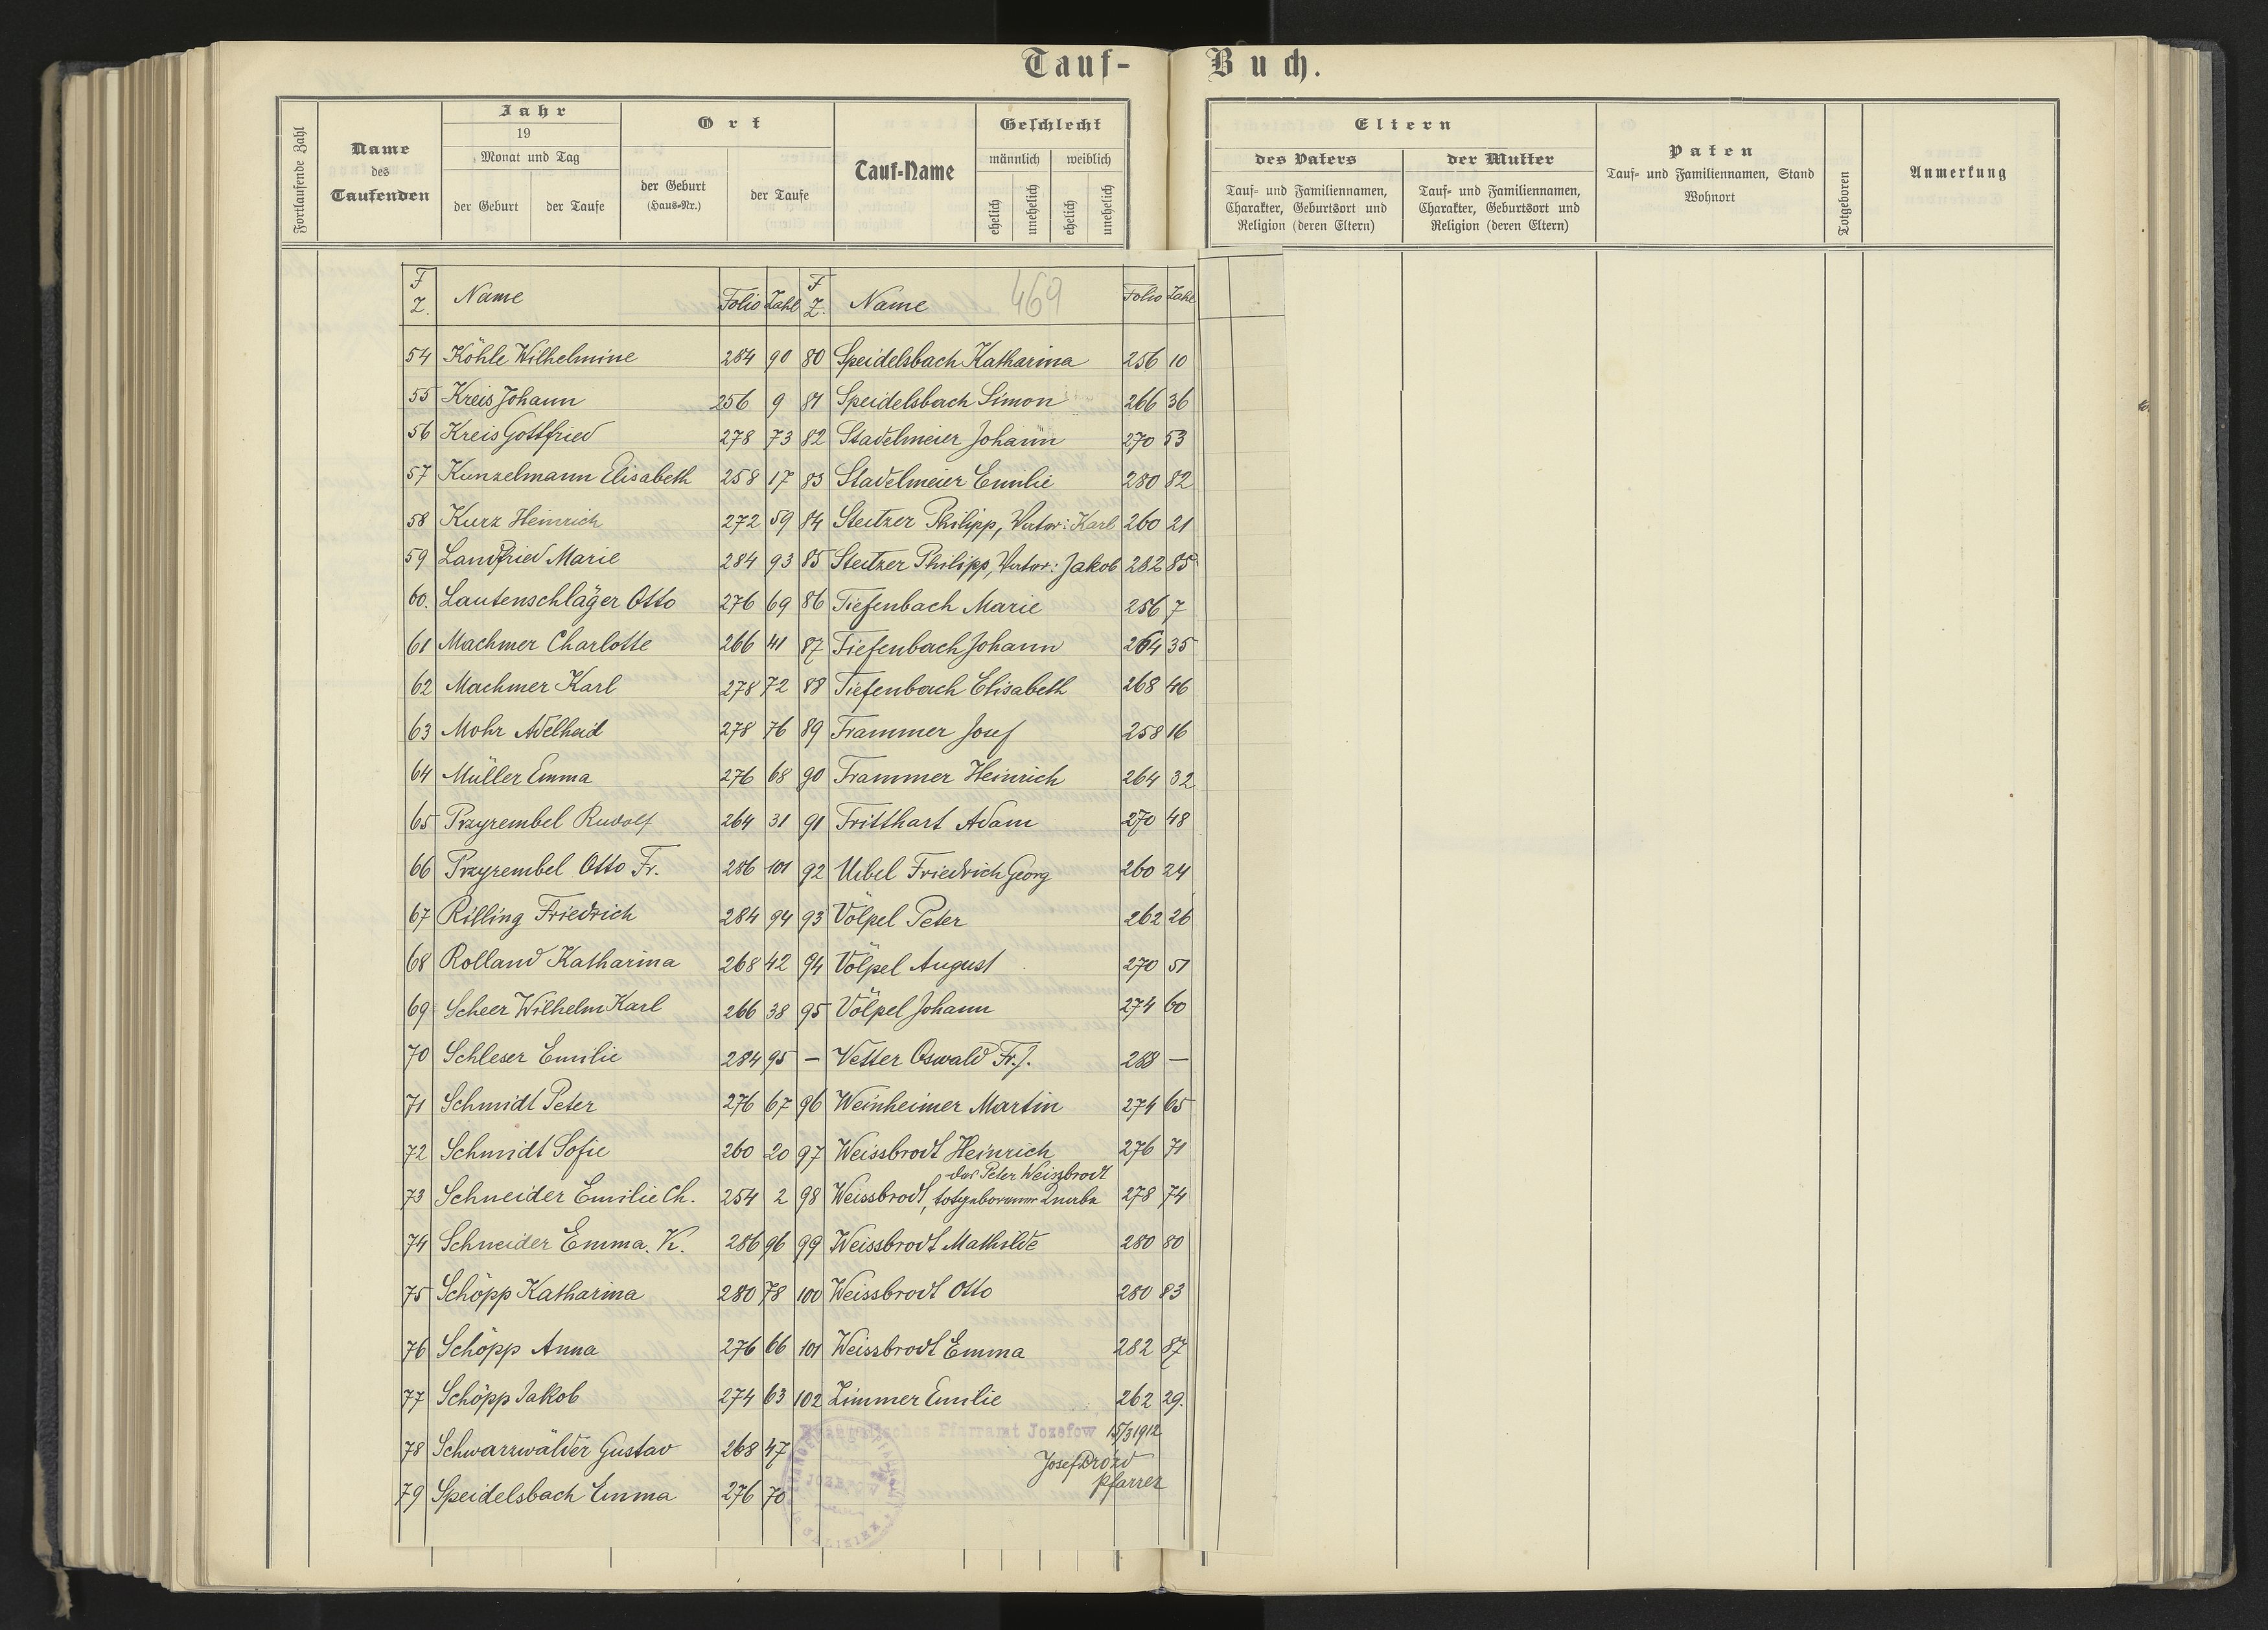 Tauf-Buch.
Fortlaufende Zahl
Name des Taufenden
Jahr
19
Monat und Tag
der Geburt
der Taufe
Ort
der Geburt (Haus-Nr.)
der Taufe
Tauf-Name
Geschlecht
männlich weiblich
ehelich unehelich ehelich unehelich
Eltern
des Vaters
Tauf- und Familiennamen, Charakter, Geburtsort und Religion (deren Eltern)
der Mutter
Tauf- und Familiennamen, Charakter, Geburtsort und Religion (deren Eltern)
Paten
Tauf- und Familiennamen, Stand
Wohnort
Totgeboren
Anmerkung
F Z. Name Folio Zahl F Z. Name 469 Folio Zahl
54 Köhle Wilhelmine 284 90 80 Speidelsbach Katharina 256 10
55 Kreis Johann 256 9 81 Speidelsbach Simon 266 36
56 Kreis Gottfried 278 73 82 Stadelmeier Johann 270 53
57 Kunzelmann Elisabeth 258 17 83 Stadelmeier Emilie 280 82
58 Kurz Heinrich 272 59 84 Steitzer Philipp, Vater: Karl 260 21
59 Landfried Marie 284 93 85 Steitzer Philipp, Vater: Jakob 282 85
60. Lautenschläger Otto 276 69 86 Tiefenbach Marie 256 7
61 Machmer Charlotte 266 41 87 Tiefenbach Johann 264 35
62 Machmer Karl 278 72 88 Tiefenbach Elisabeth 268 46
63 Mohr Adelheid 278 76 89 Trammer Josef 258 16
64 Müller Emma 276 68 90 Trammer Heinrich 264 32
65 Przyrembel Rudolf 264 31 91 Tritthart Adam 270 48
66 Przyrembel Otto Fr. 286 101 92 Uibel Friedrich Georg 260 24
67 Rilling Friedrich 284 94 93 Völpel Peter 262 26
68 Rolland Katharina 268 42 94 Völpel August 270 51
69 Scheer Wilhelm Karl 266 38 95 Völpel Johann 274 60
70 Schleser Emilie 284 95 – Vetter Oswald Fr. J. 288 –
71 Schmidt Peter 276 67 96 Weinheimer Martin 274 65
72 Schmidt Sofie 260 20 97 Weissbrodt Heinrich 276 71
73 Schneider Emilie Ch. 254 2 98 Weissbrodt, des Peter Weissbrodt totgeborener Knabe 278 74
74 Schneider Emma. K. 286 96 99 Weissbrodt Mathilde 280 80
75 Schöpp Katharina 280 78 100 Weissbrodt Otto 280 83
76 Schöpp Anna 276 66 101 Weissbrodt Emma 282 87
77 Schöpp Jakob 274 63 102 Zimmer Emilie 262 29.
Evangelisches Pfarramt Jozefow 15/3 1912
78 Schwarzwälder Gustav 268 47
Josef Drozd
Pfarrer
79 Speidelsbach Emma 276 70